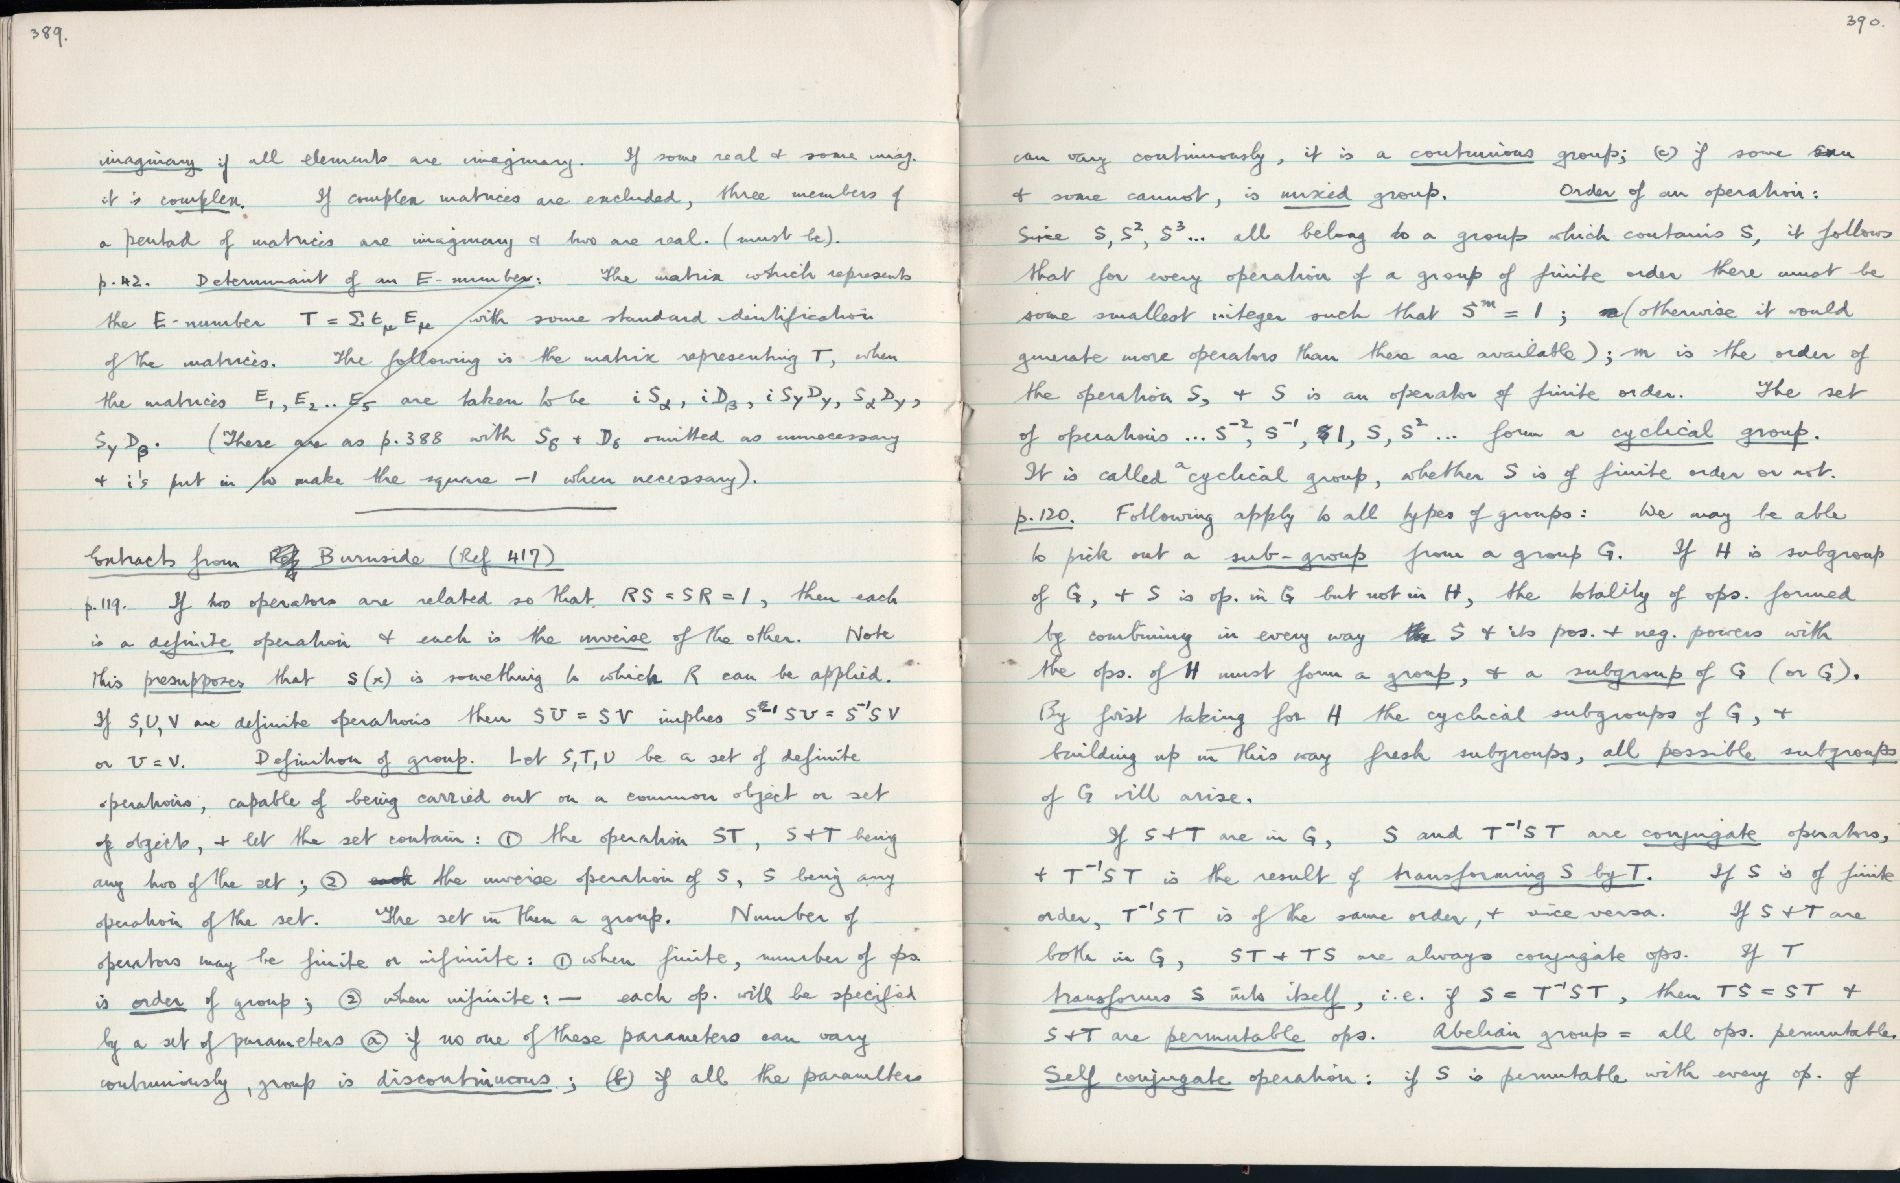 389.
imaginary if all elements are imaginary. If some real + some imag.
it is complex. If complex matrices are excluded, three members of
a pentad of matrices are imaginary & two are real. (must be).
p.42. Determinant of an E-number: The matrix which represents
the E-number T = Σ tμ Eμ with some standard identification
of the matrices. The following is the matrix representing T, when
the matrices E₁, E₂ .. E₅ are taken to be i Sα, i Dβ, i Sγ Dγ, Sα Dγ,
Sγ Dβ. (These are as p.388 with Sδ + Dδ omitted as unnecessary
+ i's put in to make the square -1 when necessary).
Extracts from Burnside (Ref 417)
p.119. If two operators are related so that RS = SR = 1, then each
is a definite operation & each is the inverse of the other. Note
this presupposes that S(x) is something to which R can be applied.
If S, U, V are definite operations then SU = SV implies S⁻¹SU = S⁻¹SV
or U = V. Definition of group. Let S, T, U be a set of definite
operations, capable of being carried out on a common object or set
of objects, + let the set contain: ① the operation ST, S + T being
any two of the set; ② the inverse operation of S, S being any
operation of the set. The set in then a group. Number of
operators may be finite or infinite: ① when finite, number of ops
is order of group; ② when infinite: — each op. will be specified
by a set of parameters ⓐ if no one of these parameters can vary
continuously, group is discontinuous; (b) if all the parameters
390.
can vary continuously, it is a continuous group; (c) if some can
+ some cannot, is mixed group. Order of an operation:
Since S, S², S³... all belong to a group which contains S, it follows
that for every operation of a group of finite order there must be
some smallest integer such that Sᵐ = 1; (otherwise it would
generate more operators than there are available); m is the order of
the operation S, + S is an operator of finite order. The set
of operations ... S⁻², S⁻¹, 1, S, S² ... form a cyclical group.
It is called a cyclical group, whether S is of finite order or not.
p.120. Following apply to all types of groups: We may be able
to pick out a sub-group from a group G. If H is subgroup
of G, + S is op. in G but not in H, the totality of ops. formed
by combining in every way S + its pos. + neg. powers with
the ops. of H must form a group, & a subgroup of G (or G).
By first taking for H the cyclical subgroups of G, +
building up in this way fresh subgroups, all possible subgroups
of G will arise.
If S + T are in G, S and T⁻¹ST are conjugate operators,
+ T⁻¹ST is the result of transforming S by T. If S is of finite
order, T⁻¹ST is of the same order, + vice versa. If S + T are
both in G, ST + TS are always conjugate ops. If T
transforms S into itself, i.e. if S = T⁻¹ST, then TS = ST +
S + T are permutable ops. Abelian group = all ops. permutable.
Self conjugate operation: if S is permutable with every op. of